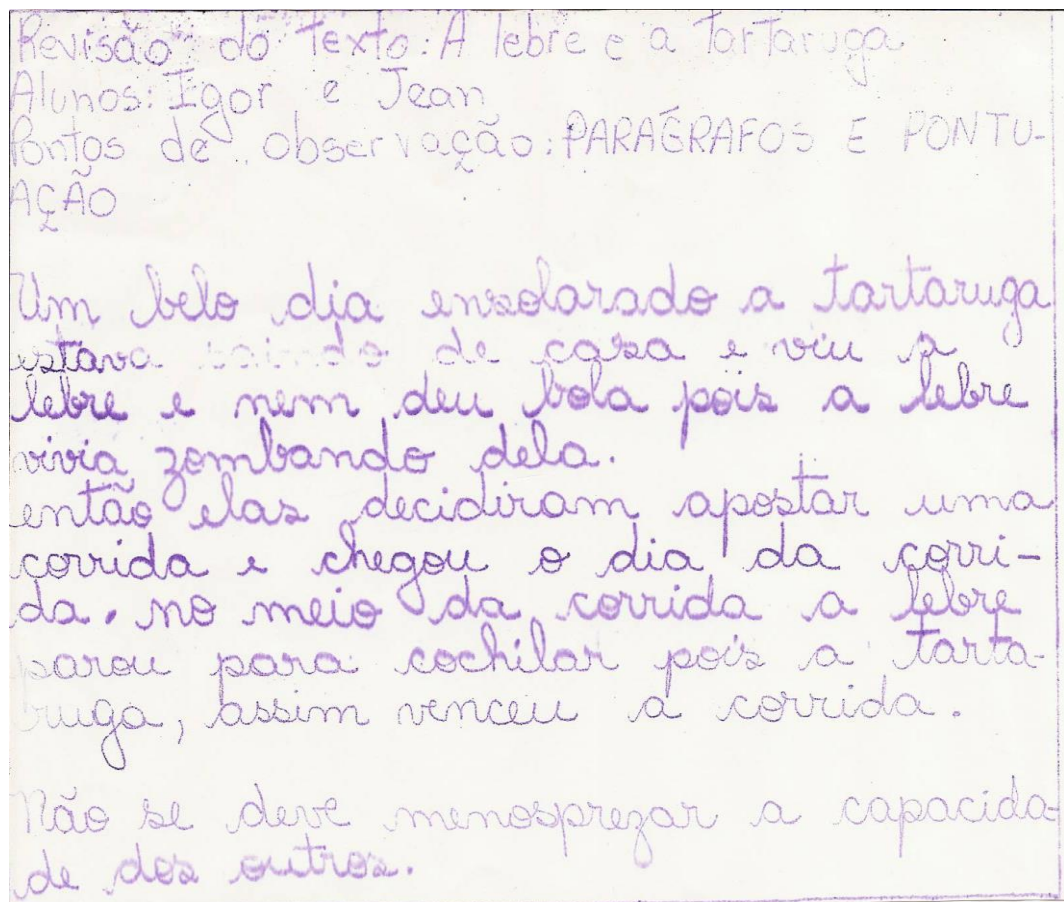 Revisão do Texto: A lebre e a Tartaruga
Alunos: Igor e Jean
Pontos de observação: PARÁGRAFOS E PONTU-
AÇÃO
Um belo dia ensolarado a tartaruga
estava saindo de casa e viu a
lebre e nem deu bola pois a lebre
vivia zombando dela.
então elas decidiram apostar uma
corrida e chegou o dia da corri-
da. no meio da corrida a lebre
parou para cochilar pois a tarta-
ruga, assim venceu a corrida.
Não se deve menosprezar a capacida-
de dos outros.